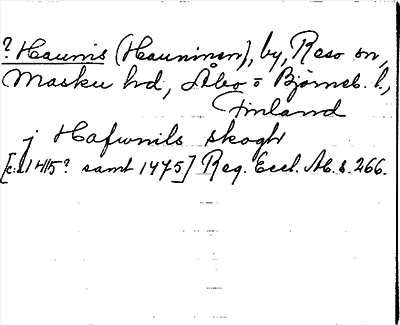 ? Haunis (Hauninen), by, Reso sn,
Masku hd, Åbo o Björneb. l.,
Finland
j Hafwnils skogh
[c:a 1415? samt 1475] Reg. Eccl. Ab. s. 266.